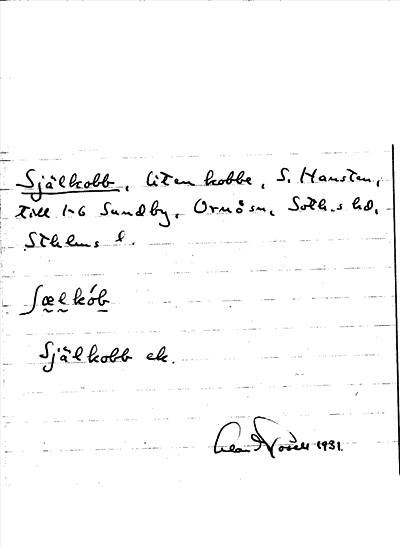 Själkobb, liten kobbe, S. Hansten,
till 1-6 Sundby, Ornö sn, Soth.s hd,
Sthlms l.
ʃælkób
Själkobb ek.
1931.